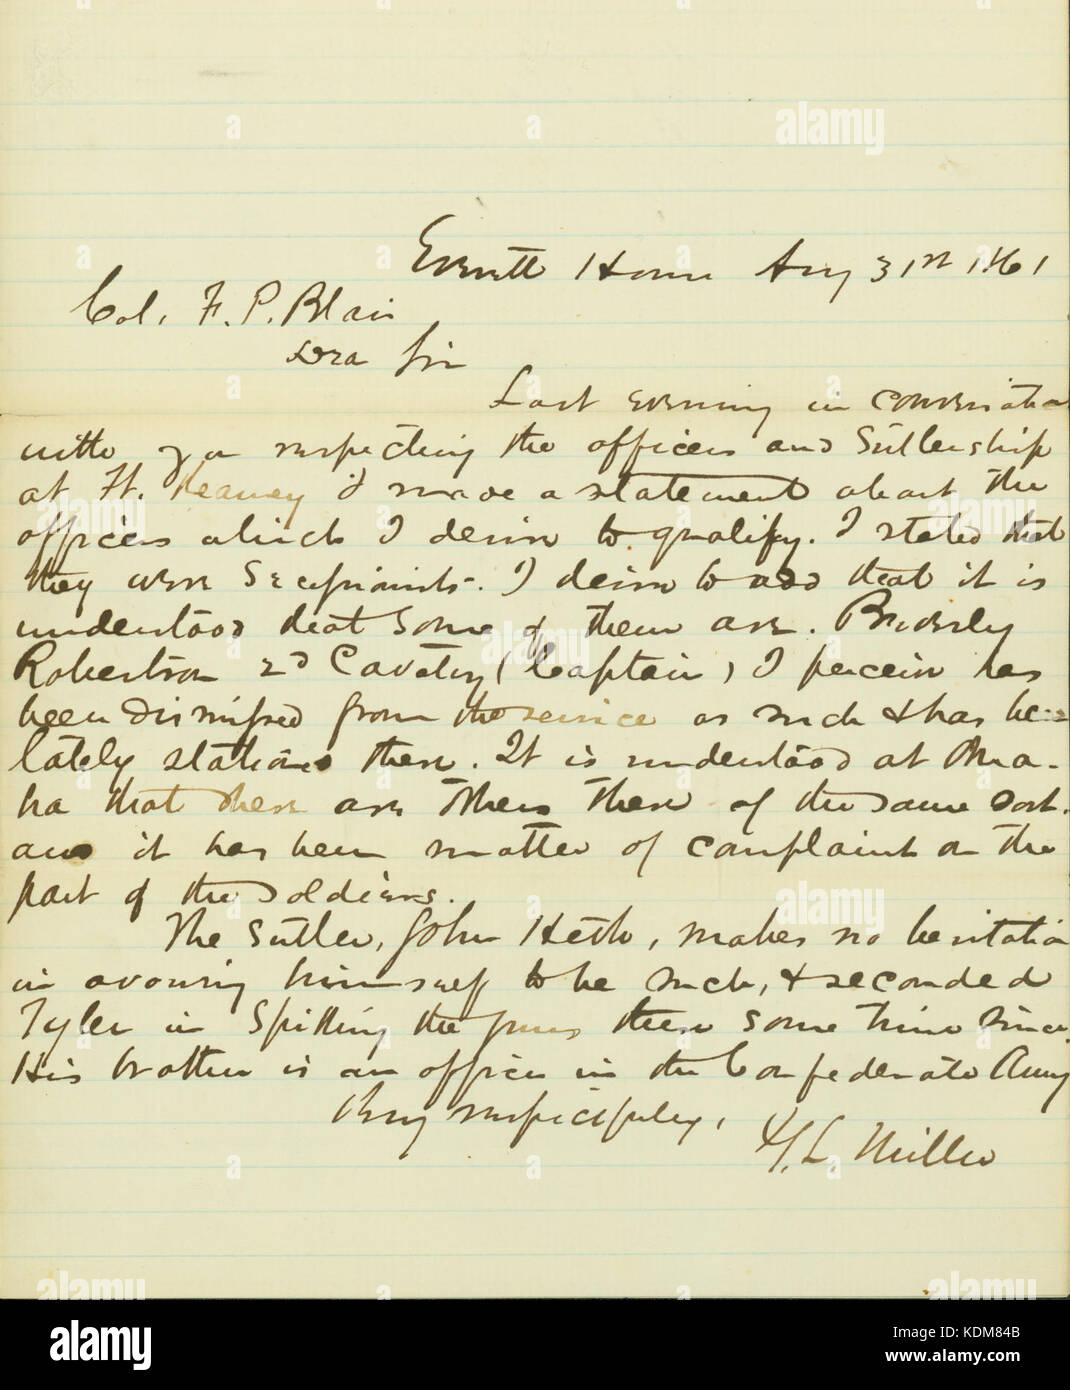 Everett House Aug 31st 1861
Col. F. P. Blair
Dear Sir
Last evening in conversation
with you respecting the officers and Sutlership
at Ft. Kearney I made a statement about the
officers which I desire to qualify. I stated that
they were Secessionists. I desire to add that it is
understood that some of them are. Beverly
Robertson 2d Cavalry (Captain) I perceive has
been dismissed from the service as such & has been
lately stationed there. It is understood at Oma-
ha that there are others there of the same sort.
and it has been matter of complaint on the
part of the soldiers.
The Sutler, John Heth, makes no hesitation
in avowing himself to be such, & seconded
Tyler in Spiking the guns there some time since.
His brother is an officer in the Confederate Army
Very respectfully,
G. L. Miller
alamy
a
KDM84B
www.alamy.com